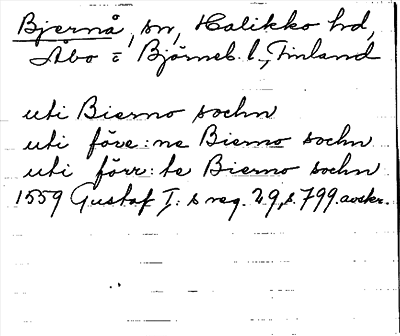 Bjernå, sn, Halikko hd,
Åbo o Björneb. l., Finland
uti Bierno sochn
uti före:ne Bierno sochn
uti förr:te Bierno sochn
1559 Gustaf I:s reg. 29, s. 799. avskr.